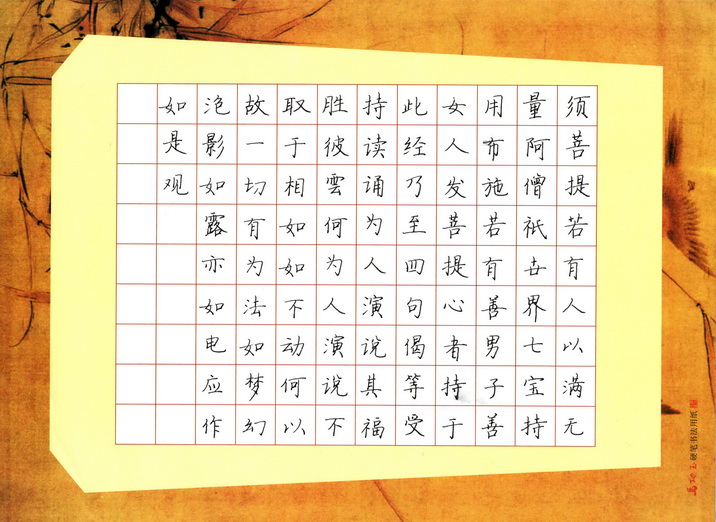 须菩提若有人以满无
量阿僧祇世界七宝持
用布施若有善男子善
女人发菩提心者持于
此经乃至四句偈等受
持读诵为人演说其福
胜彼雲何为人演说不
取于相如如不动何以
故一切有为法如梦幻
泡影如露亦如电应作
如是观
硬笔书法用纸